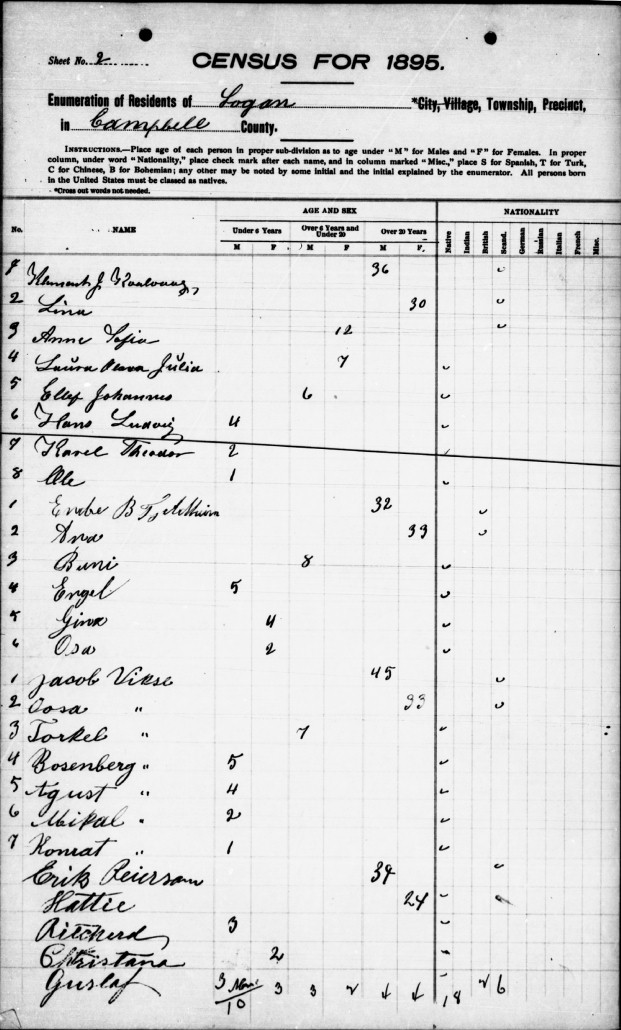 Sheet No. 2
CENSUS FOR 1895.
Enumeration of Residents of Logan *City, Village, Township, Precinct,
in Campbell County.
INSTRUCTIONS.—Place age of each person in proper sub-division as to age under "M" for Males and "F" for Females. In proper
column, under word "Nationality," place check mark after each name, and in column marked "Misc.," place S for Spanish, T for Turk,
C for Chinese, B for Bohemian; any other may be noted by some initial and the initial explained by the enumerator. All persons born
in the United States must be classed as natives.
*Cross out words not needed.
AGE AND SEX NATIONALITY
No. NAME Under 6 Years Over 6 Years and Under 20 Over 20 Years Native Indian British Scand. German Russian Italian French Misc.
M F M F M F.
J. 36
2 Lina 30
3 Anne Sofia 12
4 Laura Julia 7
5 Johannes 6
6 Hans Ludvig 4
7 Karel Theodor 2
8 Ole 1
1 B 32
2 Ana 33
3 Buni 8
4 Engel 5
5 Gina 4
6 Osa 2
1 Jacob Vikse 45
2 " 33
3 Torkel " 7
4 Bosenberg " 5
5 Agust " 4
6 Mikal " 2
7 Konrat " 1
Erik Reierson
Hattie 24
Ritcherd 3
Christana 2
Gustaf 3 10 3 3 2 4 4 18 2 6